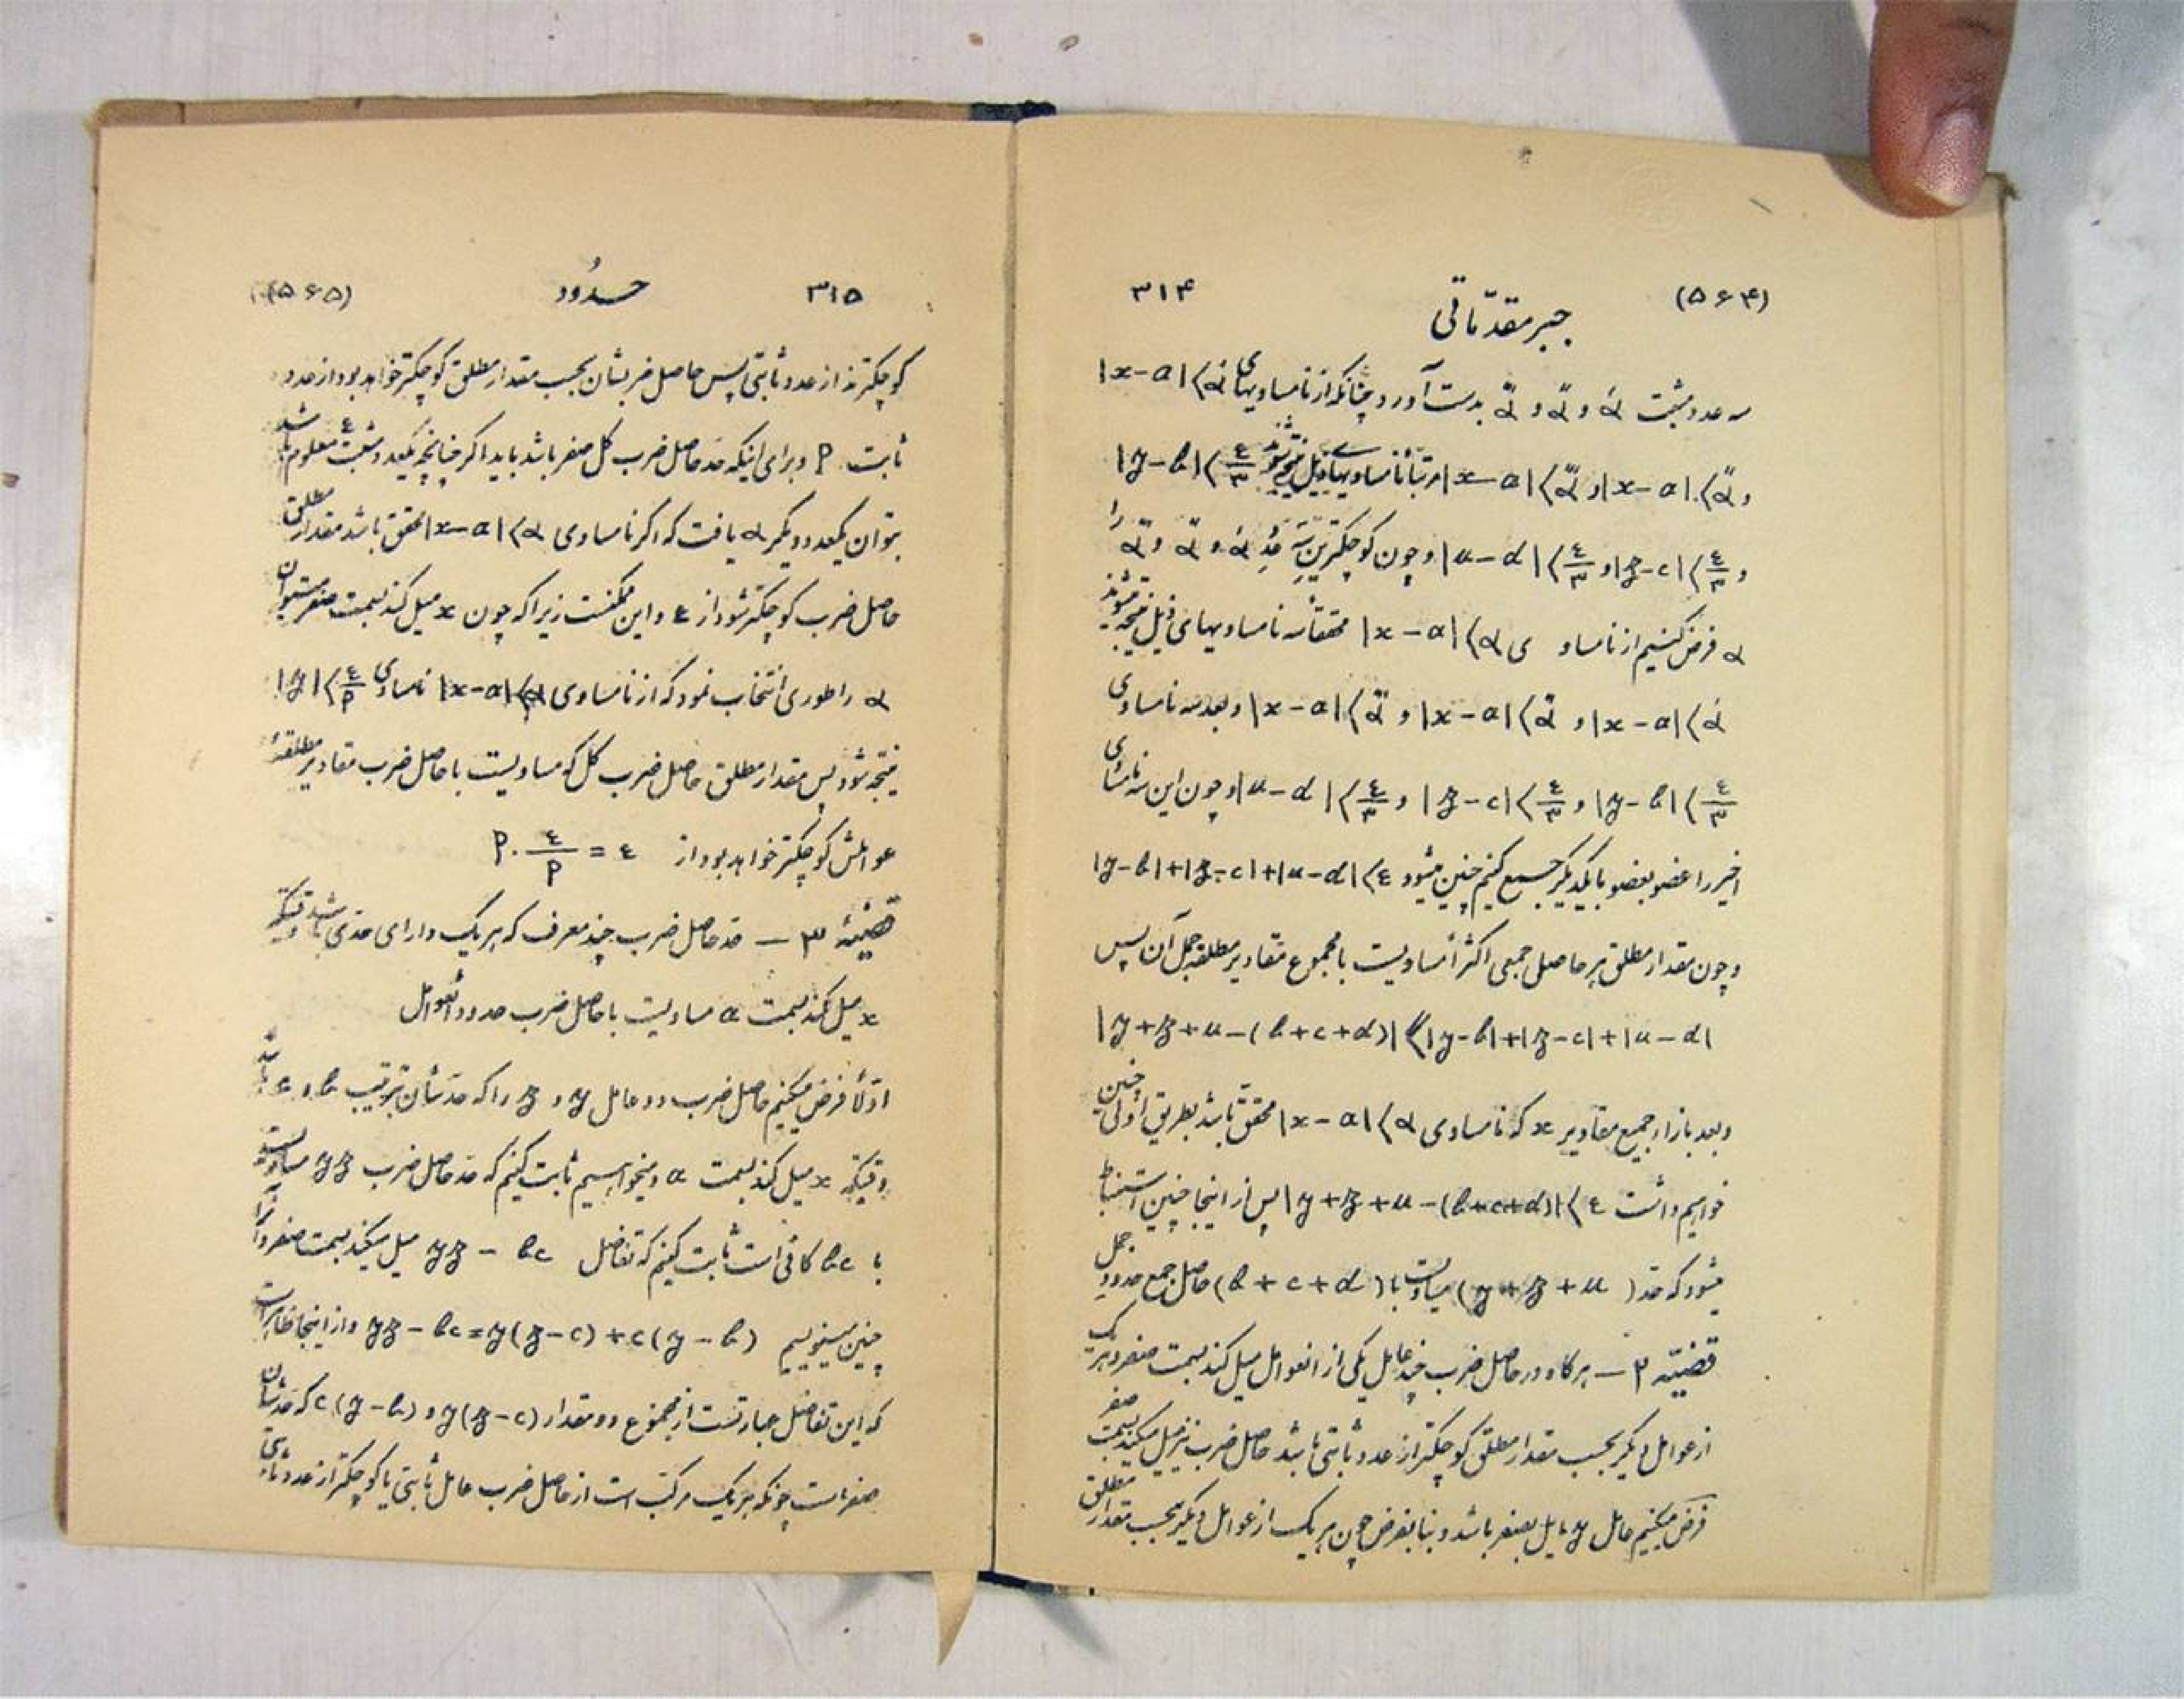 (۵۶۴) جبر مقدّماتی ۳۱۴
سه عدد مثبت ά و α̈ و α⃛ بدست آورد چنانکه از نامساویهای |x-a|⟨ά
و |x-a|⟨α̈ و |x-a|⟨α⃛ مرتباً نامساویهای ذیل نتیجه شوند |y-b|⟨ε/۳
و |z-c|⟨ε/۳ و |u-d|⟨ε/۳ و چون کوچکترین سه عدد ά و α̈ و α⃛ را
α فرض کنیم از نامساوی |x-a|⟨α محققاً سه نامساویهای ذیل نتیجه میشوند
|x-a|⟨ά و |x-a|⟨α̈ و |x-a|⟨α⃛ و بعد سه نامساوی
|y-b|⟨ε/۳ و |z-c|⟨ε/۳ و |u-d|⟨ε/۳ و چون این سه نامساوی
اخیر را عضو بعضو با یکدیگر جمع کنیم چنین میشود |y-b|+|z-c|+|u-d|⟨ε
و چون مقدار مطلق هر حاصل جمعی اکثراً مساویست با مجموع مقادیر مطلقه جمل آن پس
|y+z+u-(b+c+d)|⟨|y-b|+|z-c|+|u-d|
و بعد بازاء جمیع مقادیر x که نامساوی |x-a|⟨α محقق باشد بطریق اولی چنین
خواهیم داشت |y+z+u-(b+c+d)|⟨ε پس از اینجا چنین استنباط
میشود که حد (y+z+u) مساویست با (b+c+d) حاصل جمع حدود جمل
قضیّه ۲ — هرگاه در حاصل ضرب چند عامل یکی از انعوامل میل کند بسمت صفر و هر یک
از عوامل دیگر بحسب مقدار مطلق کوچکتر از عدد ثابتی باشد حاصل ضرب نیز میل میکند بسمت صفر
فرض میکنیم عامل y مایل بصفر باشد و بنا بفرض چون هر یک از عوامل دیگر بحسب مقدار مطلق
۳۱۵ حدُود (۵۶۵)
کوچکترند از عدد ثابتی پس حاصل ضربشان بحسب مقدار مطلق کوچکتر خواهد بود از عدد
ثابت P و برای اینکه حد حاصل ضرب کل صفر باشد باید اگر چنانچه یکعدد مثبت ε معلوم باشد
بتوان یکعدد دیگر α یافت که اگر نامساوی |x-a|⟨α محقق باشد مقدار مطلق
حاصل ضرب کوچکتر شود از ε و این ممکنست زیرا که چون x میل کند بسمت صفر میتوان
α را طوری انتخاب نمود که از نامساوی |x-a|⟨α نامساوی |y|⟨ε/P
نتیجه شود پس مقدار مطلق حاصل ضرب کل که مساویست با حاصل ضرب مقادیر مطلقهٔ
عواملش کوچکتر خواهد بود از P·ε/P=ε
قضیّهٔ ۳ — حد حاصل ضرب چند معرف که هر یک دارای حدی باشد وقتیکه
x میل کند بسمت a مساویست با حاصل ضرب حدود انعوامل
اوّلاً فرض میکنیم حاصل ضرب دو عامل y و z را که حدشان بترتیب b و c باشد
وقتیکه x میل کند بسمت a و میخواهیم ثابت کنیم که حد حاصل ضرب yz مساویست
با bc کافی است ثابت کنیم که تفاضل yz - bc میل میکند بسمت صفر و آنرا
چنین مینویسیم yz-bc=y(z-c)+c(y-b) و از اینجا ظاهر است
که این تفاضل عبارتست از مجموع دو مقدار y(z-c) و c(y-b) که حدشان
صفر است چونکه هر یک مرکب است از حاصل ضرب عامل ثابتی یا کوچکتر از عدد ثابتی